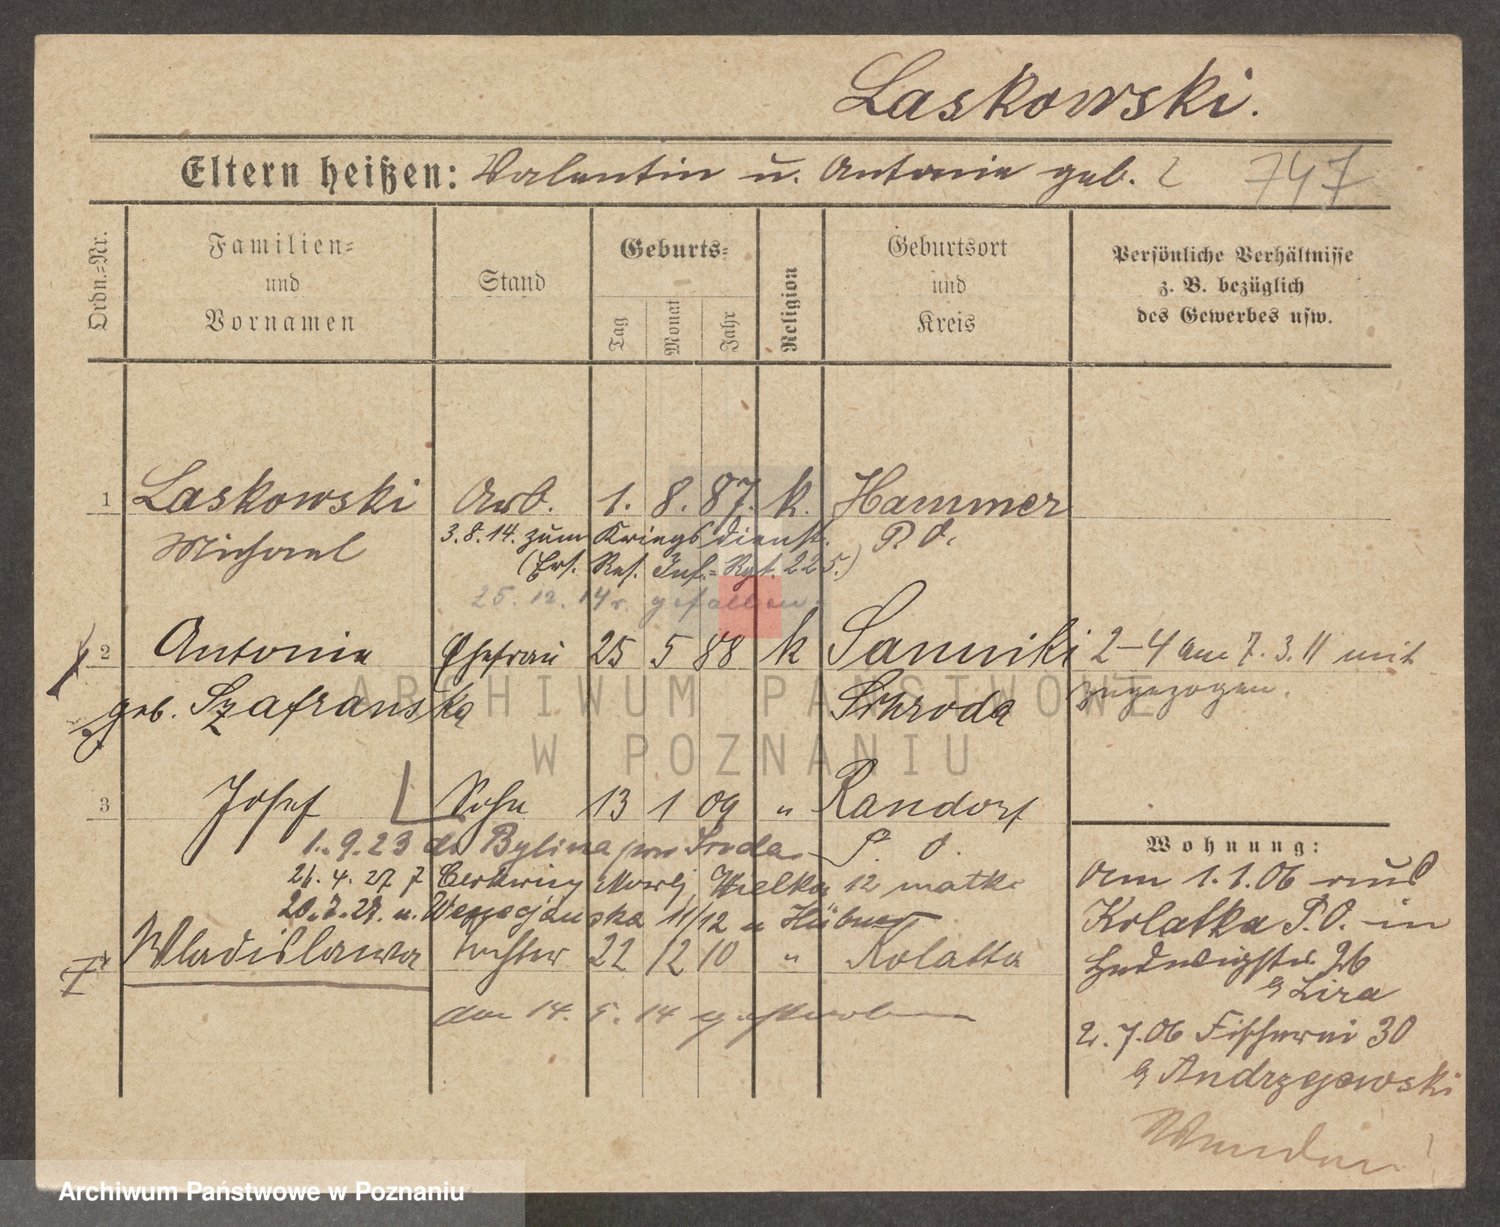 Laskowski.
Eltern heißen: Valentin u. Antonie geb. 747
Ordn.-Nr.
Familien- und Vornamen
Stand
Geburts-
Tag
Monat
Jahr
Religion
Geburtsort und Kreis
Persönliche Verhältnisse
z. B. bezüglich
des Gewerbes usw.
1 Laskowski Arb. 1. 8. 87. k. Hammer
Michael P. O.
3.8.14. zum Kriegsdienst.
(Ers. Res. Inf.-Rgt. 225.)
25. 12. 14 gefallen
2 Antonie Ehefrau 25 5 88 k Sanniki 2-4 am 7. 3. 11 mit
geb. Szafrańska Schroda zugezogen.
3 Josef Sohn 13 1 09 " Randorf
1. 9. 23 do Bylina pow Środa P. O.
21. 4. 27 z Wielka 12 matki
20. 7. 27. u. 11/12 u Hübner
4 Wladislawa Tochter 22 12 10 " Kolatta
den 14. 5. 14 gestorben
Wohnung:
Am 1. 1. 06 aus
Kolatka P. O. in
Hedwigstr. 26
b Lira
2. 7. 06 Fischerei 30
b Andrzejewski
ARCHIWUM PAŃSTWOWE
W POZNANIU
Archiwum Państwowe w Poznaniu